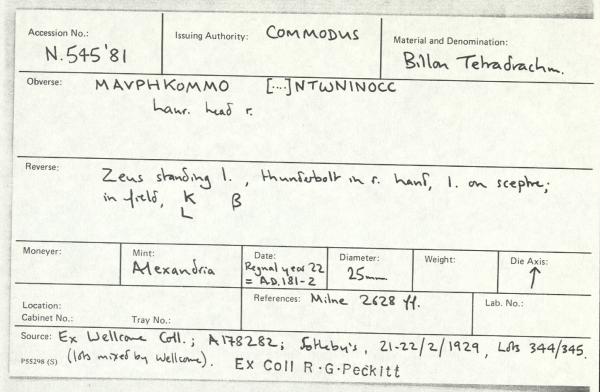 Accession No.: N.545'81
Issuing Authority: COMMODUS
Material and Denomination: Billon Tetradrachm.
Obverse: MAVPHKOMMO [...]NTWNINOCC
laur. head r.
Reverse: Zeus standing l., thunderbolt in r. hand, l. on sceptre;
in field, K B
L
Moneyer:
Mint: Alexandria
Date: Regnal year 22
= A.D.181-2
Diameter: 25mm
Weight:
Die Axis: ↑
Location:
Cabinet No.: Tray No.:
References: Milne 2628 ff.
Lab. No.:
Source: Ex Wellcome Coll.; A178282; Sotheby's, 21-22/2/1929, Lots 344/345.
P55298 (S) (lots mixed by Wellcome). Ex Coll R.G.Peckitt